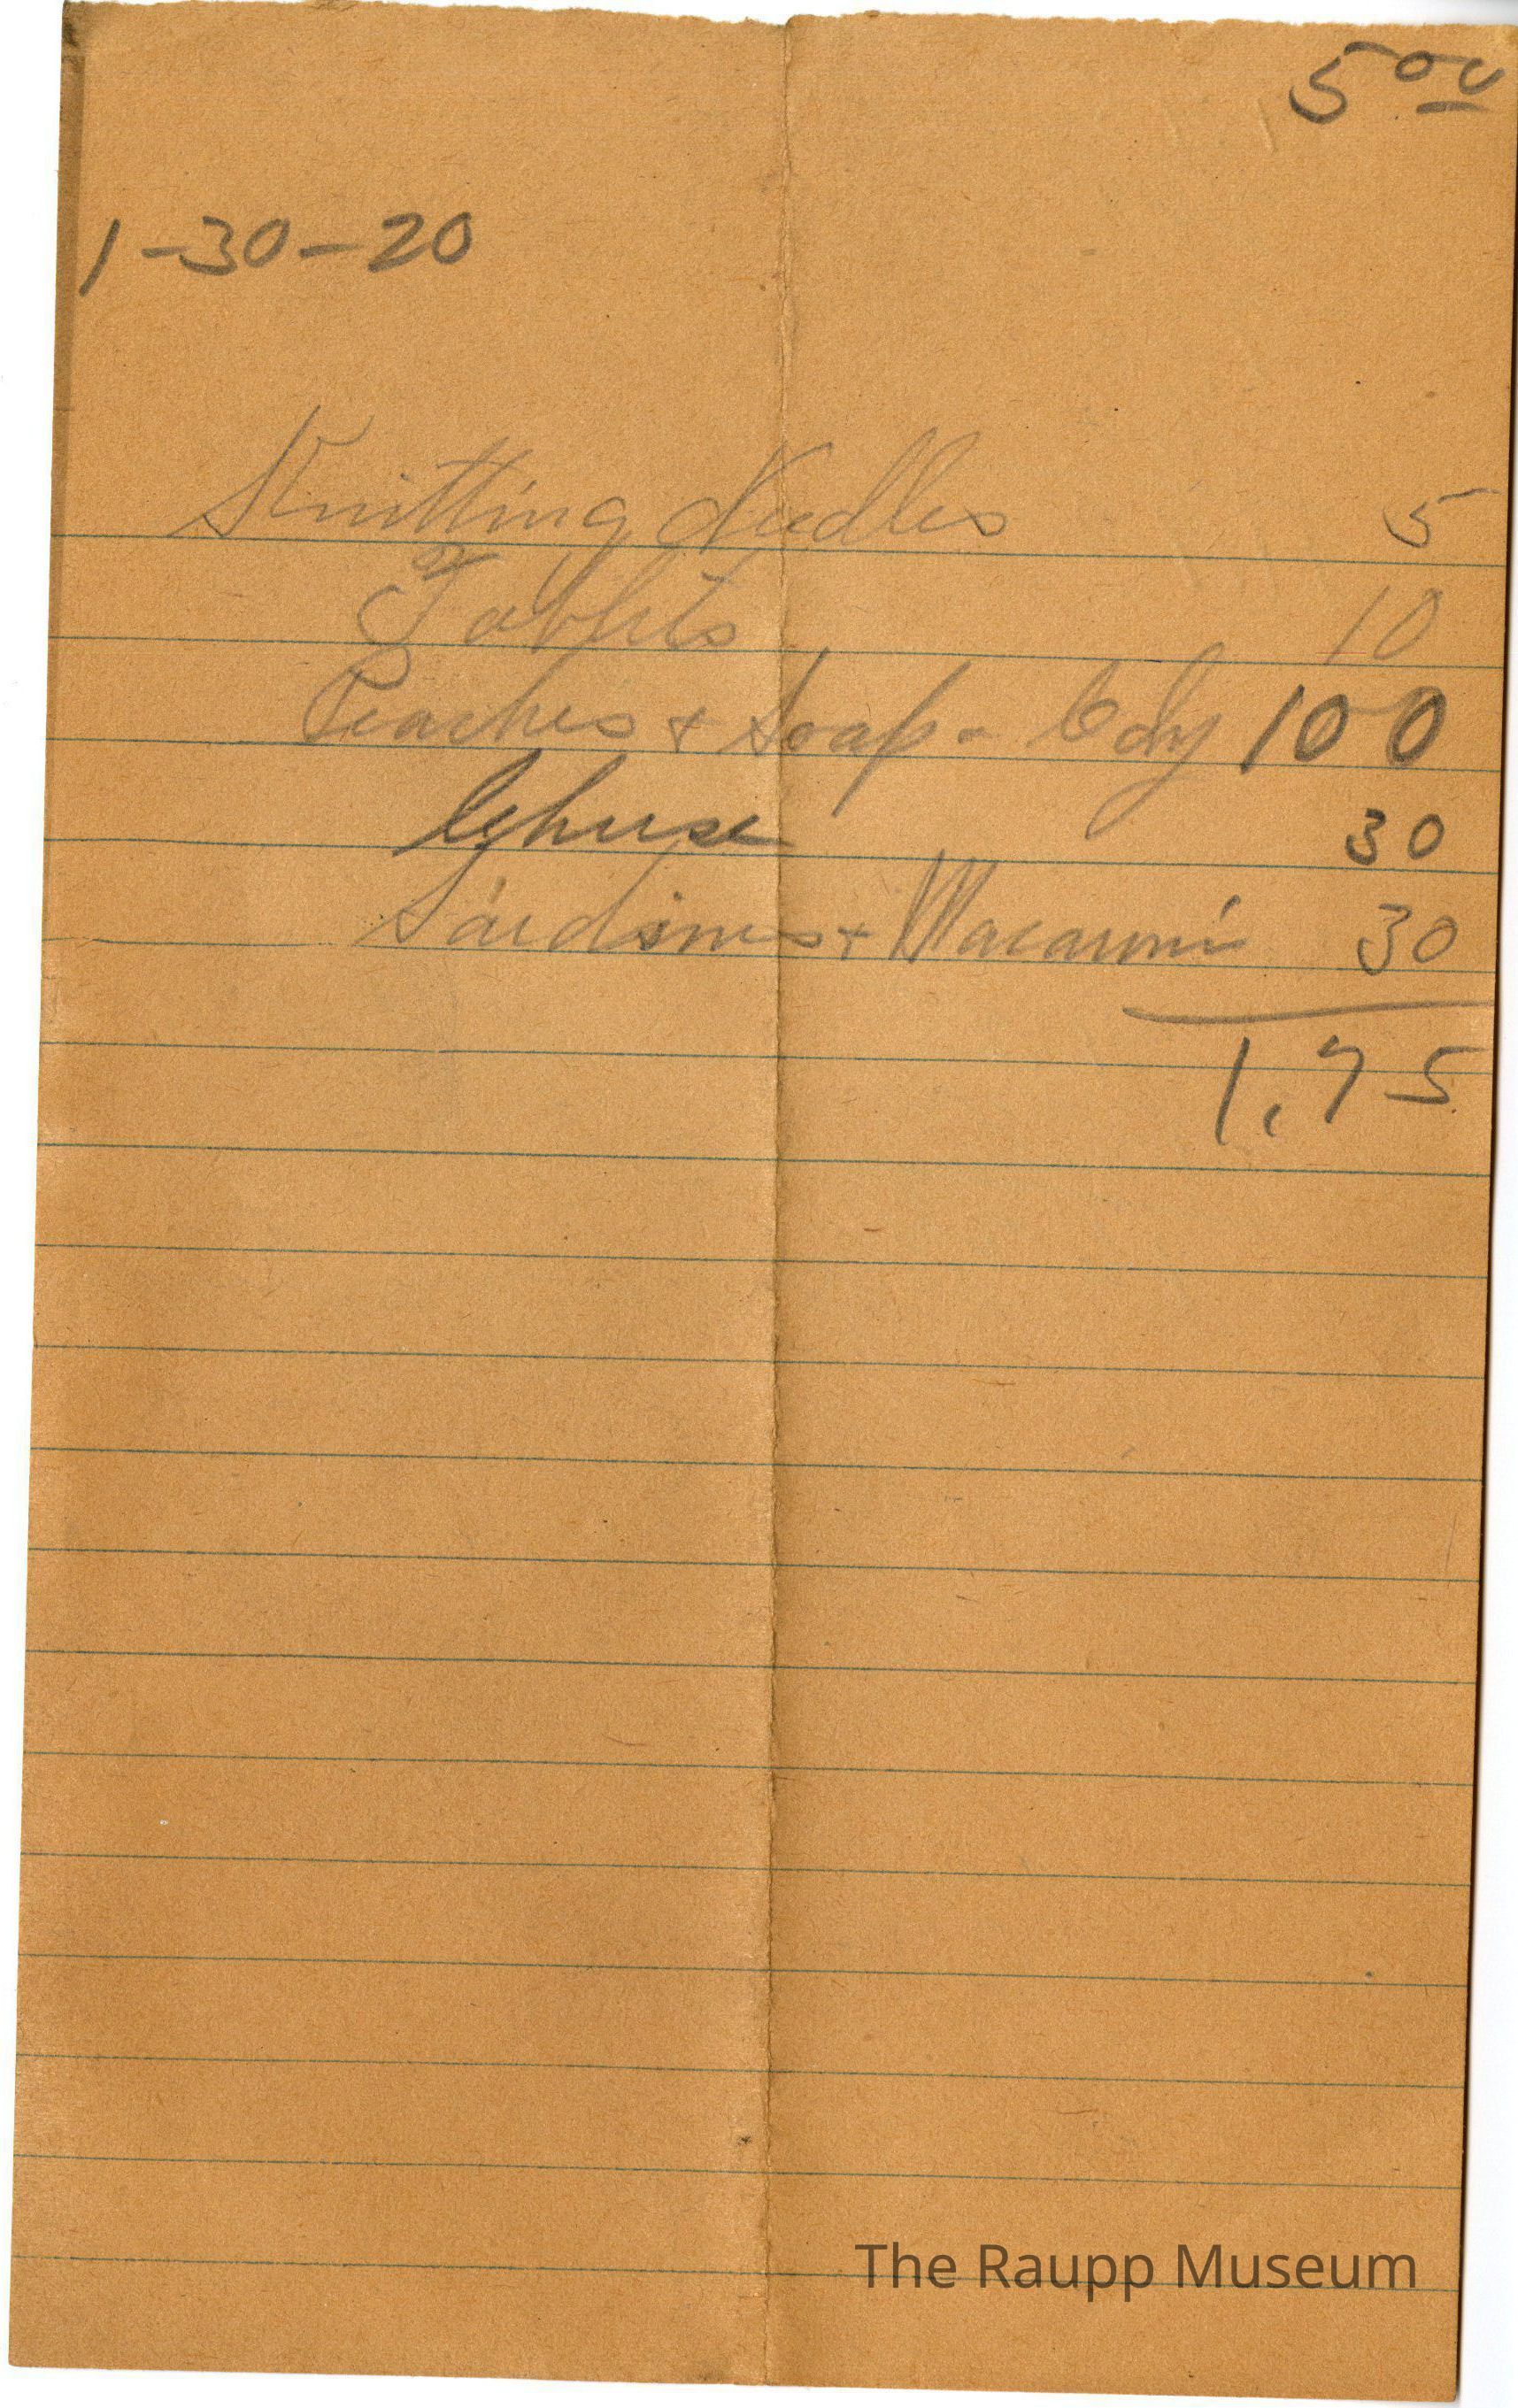 5 00
1-30-20
Knitting Needles 5
Tablets 10
Peaches + Soap - Cdy 100
30
Sardines + Macaroni 30
1.75
The Raupp Museum